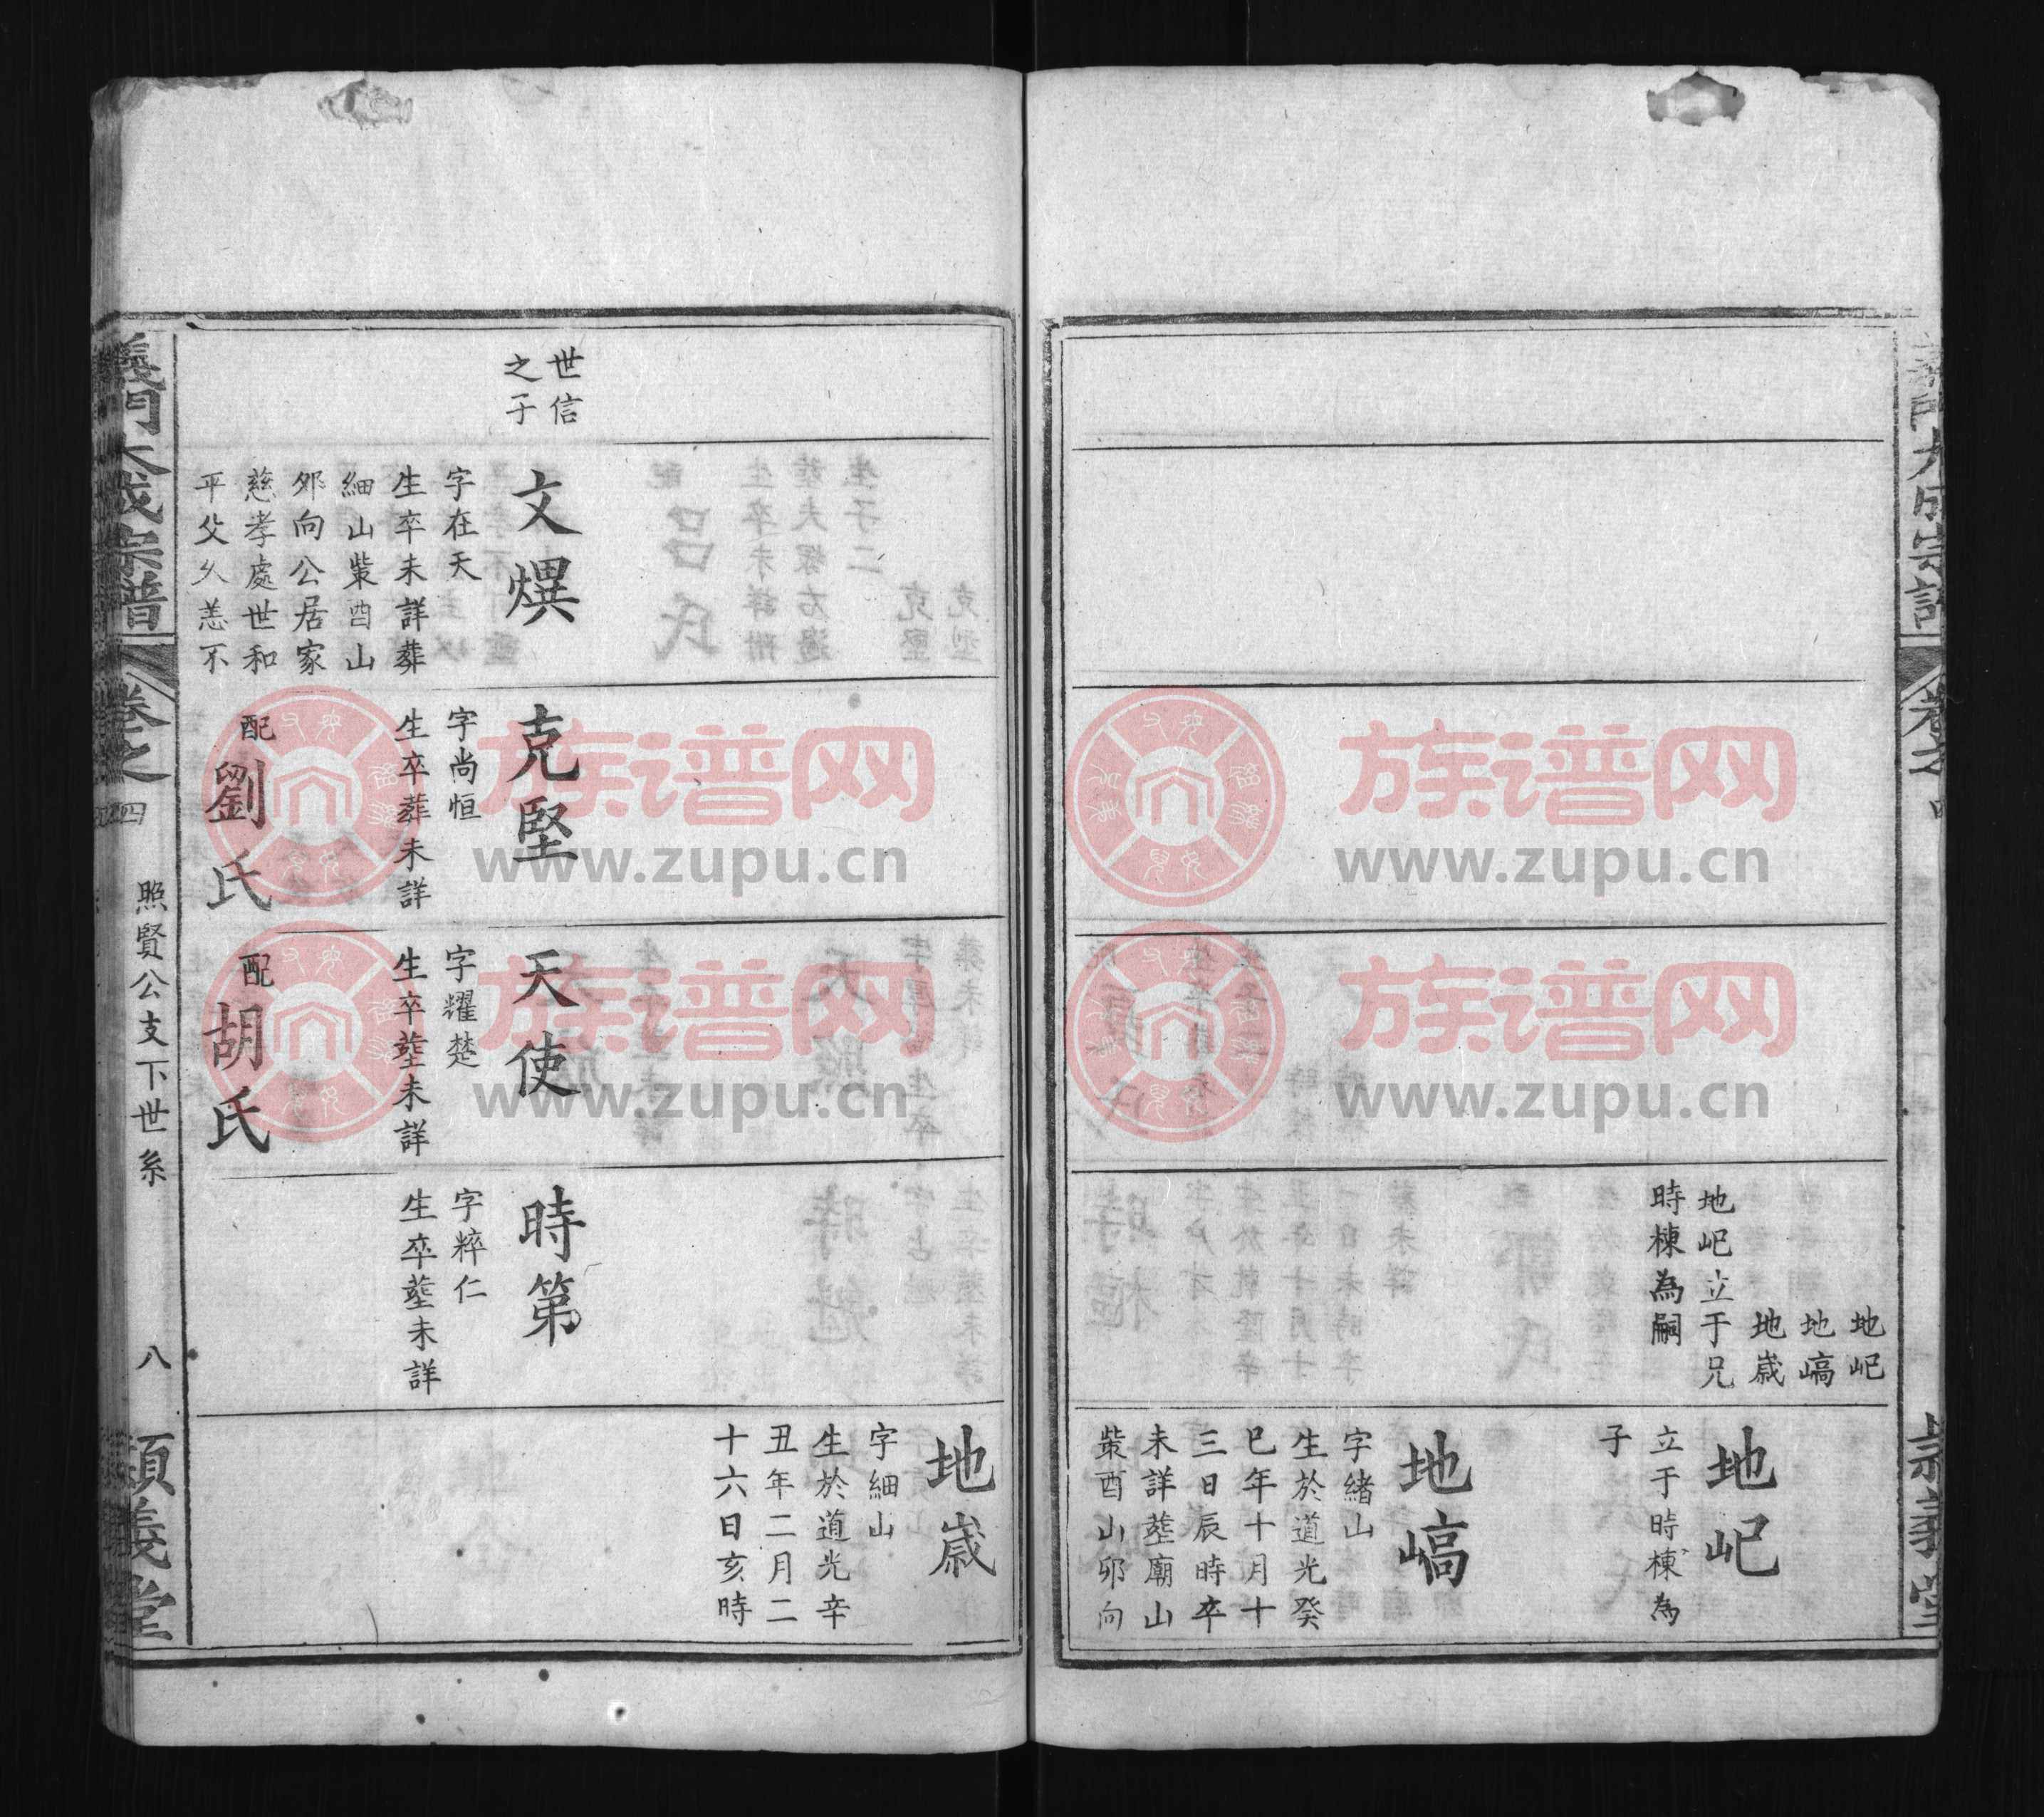 地屺
地嵪
地嵗
地屺立于兄
時棟為嗣
地屺
立于時棟為
子
地嵪
字緒山
生於道光癸
巳年十月十
三日辰時卒
未詳塟廟山
柴酉山卯向
地嵗
字細山
生於道光辛
丑年二月二
十六日亥時
世信
之子
文熼
字在天
生卒未詳葬
細山柴酉山
夘向公居家
慈孝處世和
平父久恙不
克堅
字尚恒
生卒葬未詳
配
劉氏
天使
字耀楚
生卒塟未詳
配
胡氏
時第
字粹仁
生卒塟未詳
義門大成宗譜
卷之四
照賢公支下世系
八
義堂
族谱网
www.zupu.cn
族谱网
www.zupu.cn
族谱网
www.zupu.cn
族谱网
www.zupu.cn